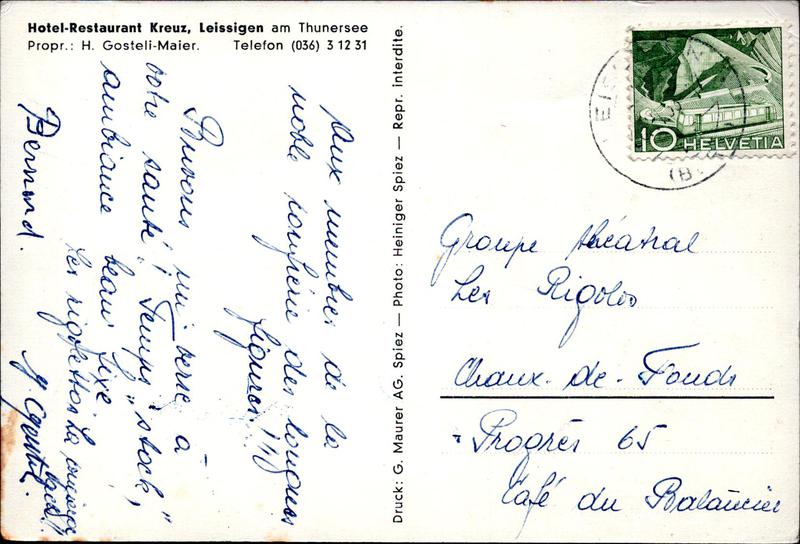 Hotel-Restaurant Kreuz, Leissigen am Thunersee
Propr.: H. Gosteli-Maier. Telefon (036) 3 12 31
Aux membres de la
noble confrérie des longues
figures !!!
Buvons un verre à
votre santé, Temps "stock",
ambiance beau fixe
Les rigolettos
Bernard.
Druck: G. Maurer AG. Spiez — Photo: Heiniger Spiez — Repr. interdite.
10 HELVETIA
Groupe théatral
Les Rigolos
Chaux-de-Fonds
Progrès 65
Café du Balancier